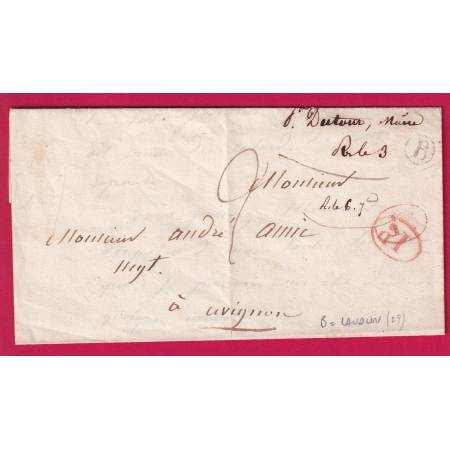 Dectour, Maire
R.le 3
B
Monsieur
R.le 6. 7d
2
Monsieur andré amic
negt.
à avignon
B = LAUDUN (28)